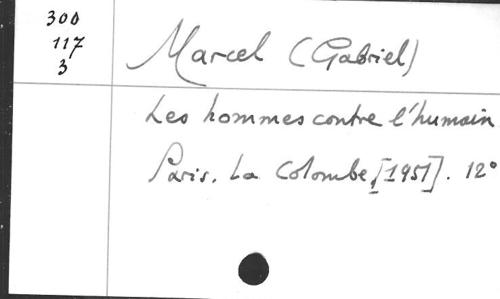 300
117
3
Marcel (Gabriel)
Les hommes contre l'humain
Paris. La Colombe, [1951]. 12°